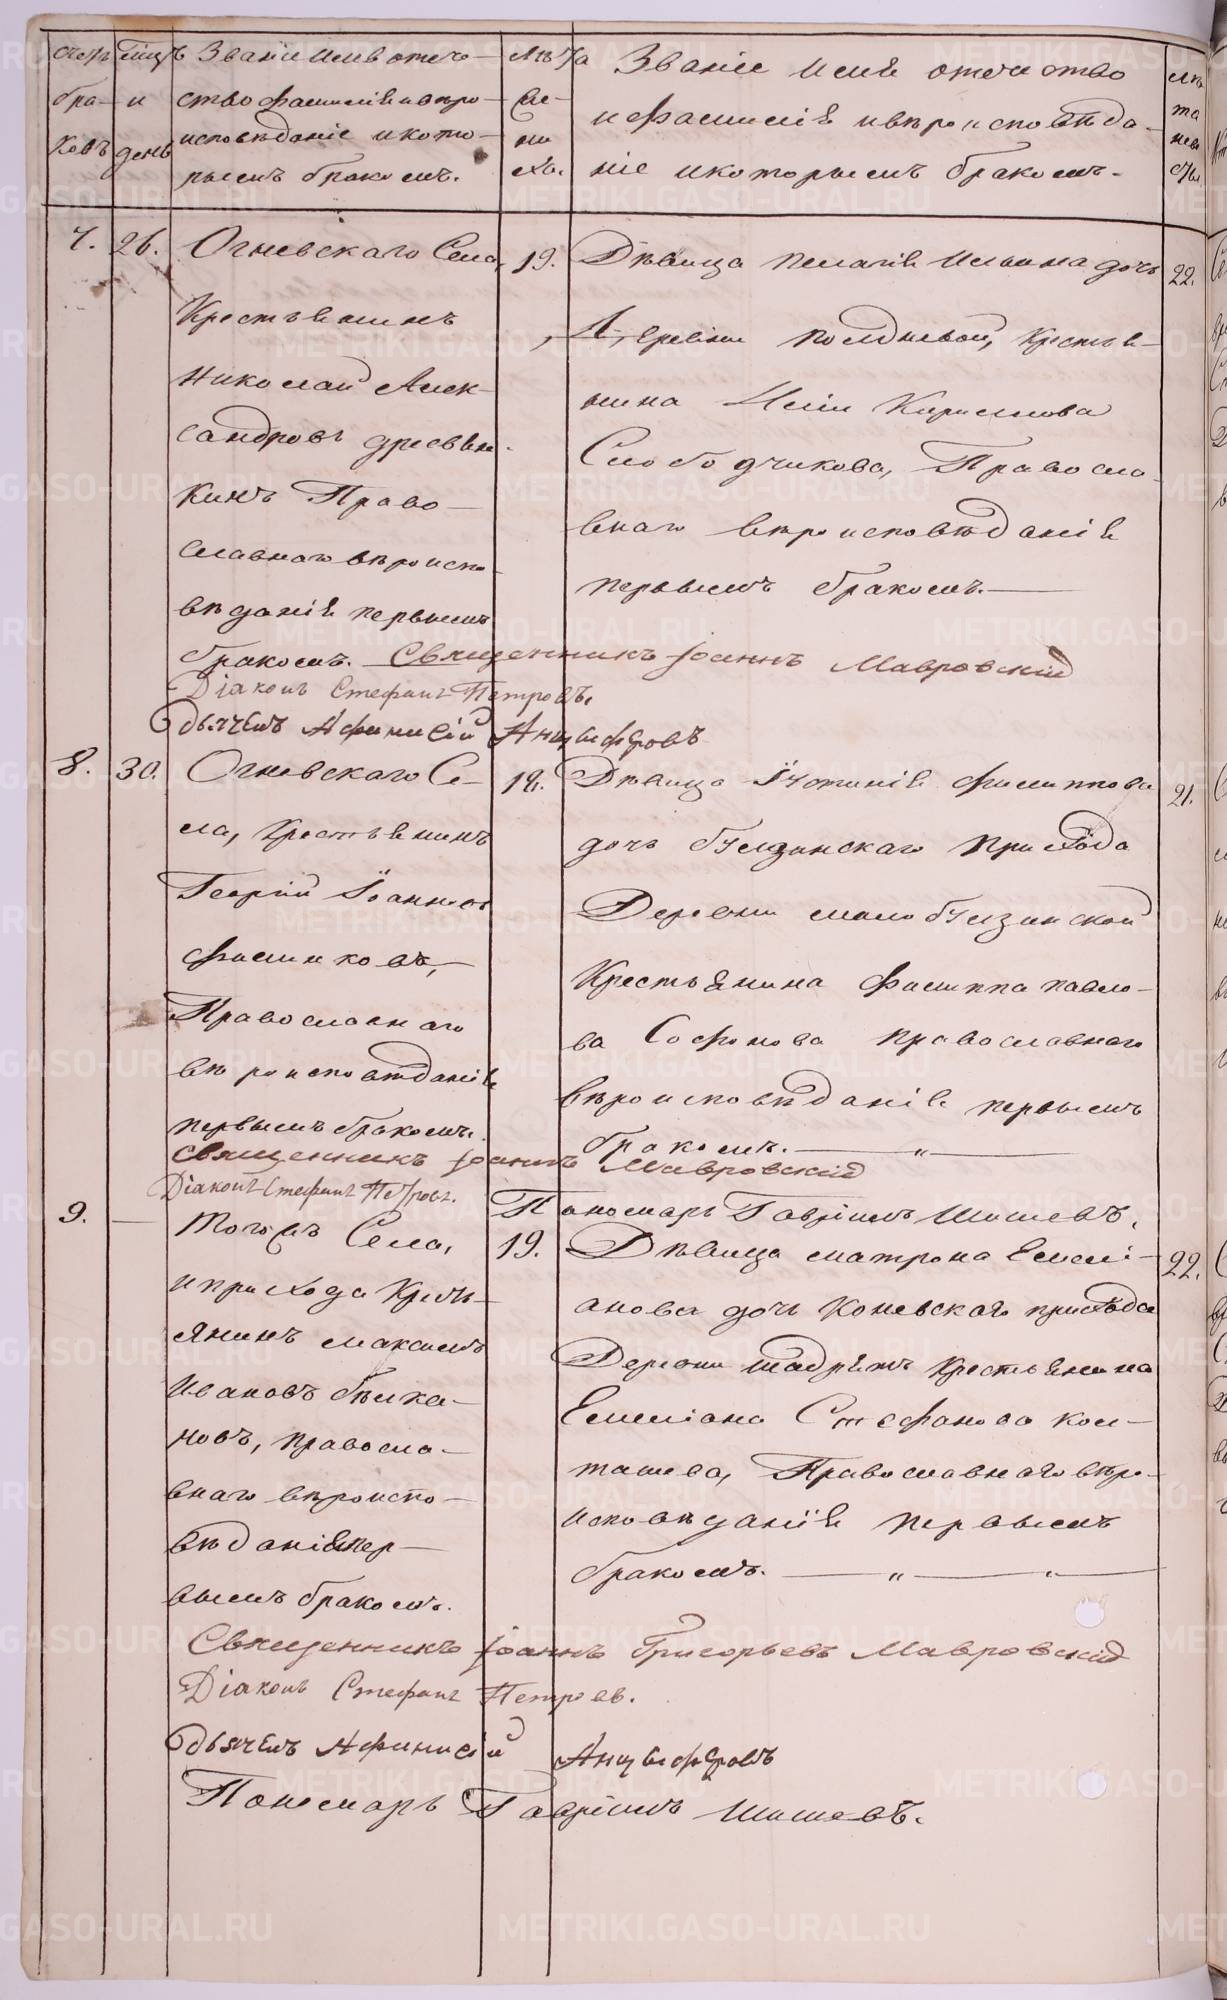 счетъ
бра-
ковъ
мѣсцъ
и
день
Званіе имя отече-
ство фамилія и вѣро-
исповѣданіе и кото-
рымъ бракомъ.
Лѣта
же-
ни
ха.
Званіе имя отечество
и фамилія и вѣроисповѣда-
ніе и которымъ бракомъ.
лѣ
та
невѣ
сты.
7. 26.
Огневскаго Села,
Крестьянинъ
Николай Алек-
сандровъ
кинъ Право-
славнаго вѣроиспо-
вѣданія первымъ
бракомъ.
19.
Дѣвица Пелагія Ильина дочь
Деревни Полдневой, Крестья-
нина Ильи Кирилова
Слободчикова, Правосла-
внаго вѣроисповѣданія
первымъ бракомъ.
22.
Священникъ Іоаннъ Мавровскій
Діаконъ Стефанъ Петровъ.
Дьячекъ Афинисій Анцыферовъ
8. 30.
Огневскаго Се-
ла, Крестьянинъ
Георгій Іоанновъ
Филинковъ,
Православнаго
вѣроисповѣданія
первымъ бракомъ.
18.
Дѣвица Іустинія Филиппова
дочь Булзинскаго Прихода
Деревни малобулзинской
Крестьянина Филиппа Павло-
ва Софонова православнаго
вѣроисповѣданія первымъ
бракомъ. — „ —
21.
Священникъ Іоаннъ Мавровскій
Діаконъ Стефанъ Петровъ.
Пономарь Гавріилъ Шишевъ.
9. —
Тогожъ Села,
и прихода Крест-
янинъ Максимъ
Ивановъ Бѣлка-
новъ, правосла-
внаго вѣроиспо-
вѣданія пер-
вымъ бракомъ.
19.
Дѣвица Матрона Емелі-
анова дочь Коневскаго прихода
Деревни Крестьянина
Емеліана Стефанова Кол-
ташева, Православнаго вѣро-
исповѣданія первымъ
бракомъ. — „ — „ —
22.
Священникъ Іоаннъ Григорьевъ Мавровскій
Діаконъ Стефанъ Петровъ.
Дьячекъ Афинисій Анцыферовъ
Пономарь Гавріилъ Шишевъ.
METRIKI.GASO-URAL.RU